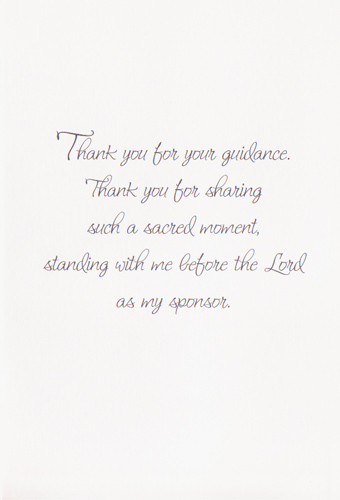 Thank you for your guidance.
Thank you for sharing
such a sacred moment,
standing with me before the Lord
as my sponsor.